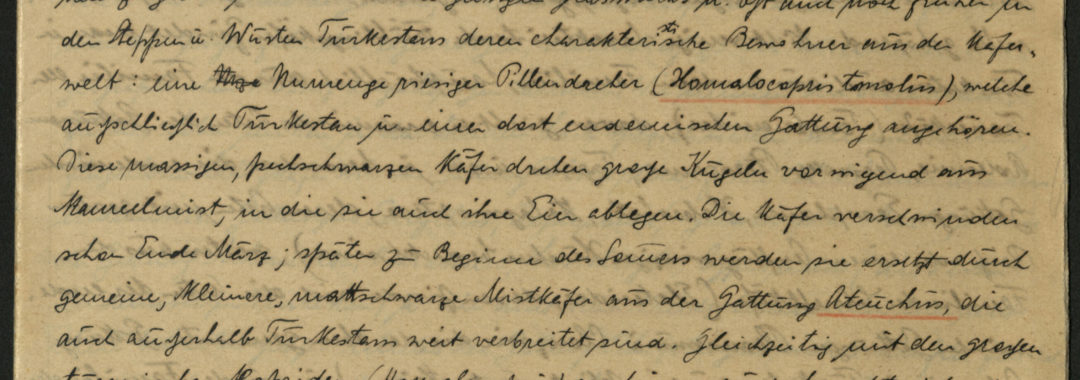 den Steppen u. Wüsten Turkestans deren charakteristische Bewohner aus der Käfer-
welt: eine Unmenge riesiger Pillendreher (Homalocopris tmolus), welche
ausschließlich Turkestan u. einer dort endemischen Gattung angehören.
Diese massigen, pechschwarzen Käfer drehen große Kugeln vorwiegend aus
Kamelmist, in die sie auch ihre Eier ablegen. Die Käfer verschwinden
schon Ende März; später zu Beginn des Sommers werden sie ersetzt durch
gemeine, kleinere, mattschwarze Mistkäfer aus der Gattung Ateuchus, die
auch außerhalb Turkestans weit verbreitet sind. Gleichzeitig mit den großen